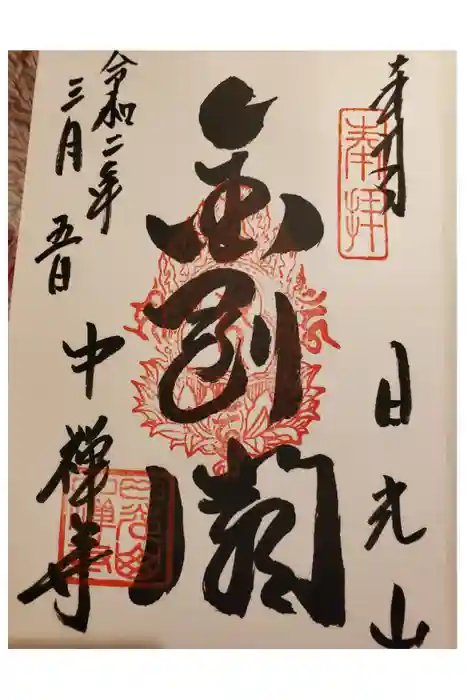 奉拝
奉拝
日光山
金剛
令和二年
三月五日
中禅寺